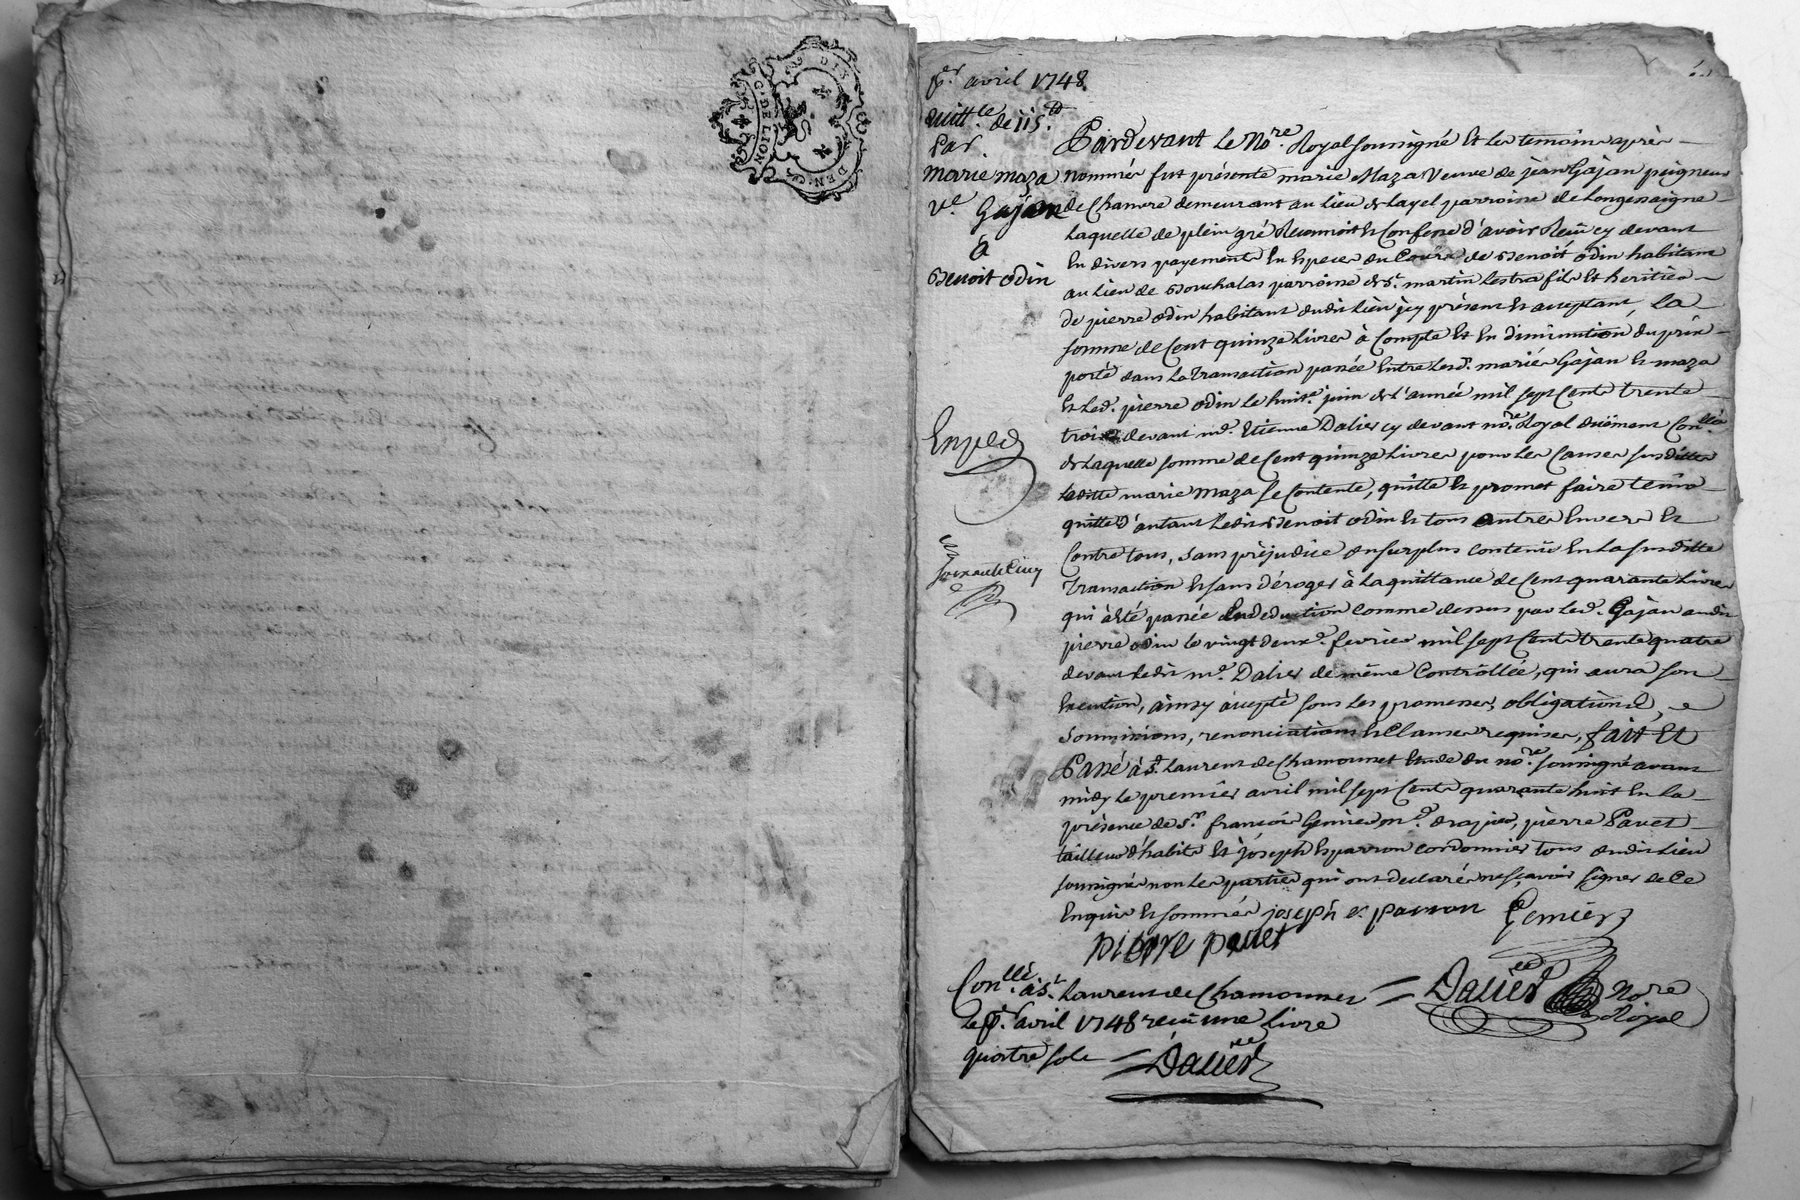 DIX
G. DE LION
DEN. ERS
p.er avril 1748.
quitt.ce de 115.tt
Par
marie maza
v.e Gajan
à
Benoit odin
Exped
Pardevant le No.re Royal soussigné Et les temoins après
nommés fut présente marie Maza Veuve de jean Gajan peigneur
de Chanvre demeurant au lieu de Layel parroisse de Longessaigne
Laquelle de plein gré Reconnoit Et Confesse d'avoir Reçû cy devant
En divers payements En Espece du Cours de Benoit odin habitant
au Lieu de Bouchalas parroisse de S.t martin Lestra fils Et heritier
de pierre odin habitant dudit Lieu jcy présent Et acceptant, La
somme de Cent quinze Livres à Compte Et En diminution du prix
porté dans La Transaction passée Entre Lesd. mariés Gajan Et maza
Et Led. pierre odin le huit.e juin de L'année mil sept Cents trente
trois devant m.e Etienne Dalier cy devant no.re Royal duëment Con.llé
de Laquelle somme de Cent quinze Livres pour Les Causes susdittes
Laditte marie maza se Contente, quitte Et promet faire tenir
quitte d'autant Ledit Benoit odin Et tous autres Envers Et
Contre tous, sans préjudice du surplus contenû En La susditte
Transaction Et sans déroger à La quittance de Cent quarante Livres
qui à Eté passée En deduction comme dessus par Led. Gajan audit
pierre odin le vingt deux.e fevrier mil sept Cents trente quatre
devant Ledit m.e Dalier de même Controllée, qui aura son
Execution, ainsy accepté sous Les promesses, obligations,
soumissions, renonciations Et Clauses requises, fait Et
Passé à S.t Laurent de Chamousset Etude du no.re soussigné avant
midy le premier avril mil sept Cents quarante huit En La
présence de S.r françois Genier m.d drapier, pierre Pauet
tailleur d'habits Et joseph Esparron cordonnier tous dudit Lieu
soussignés non Les parties qui ont declaré ne sçavoir signer de Ce
Enquis Et sommés joseph es parron Genier
pierre pauet
Con.llé à S.t Laurent de Chamousset Dalier No.re Royal
Le p.er avril 1748 reçû une Livre
quatre sols Dalier